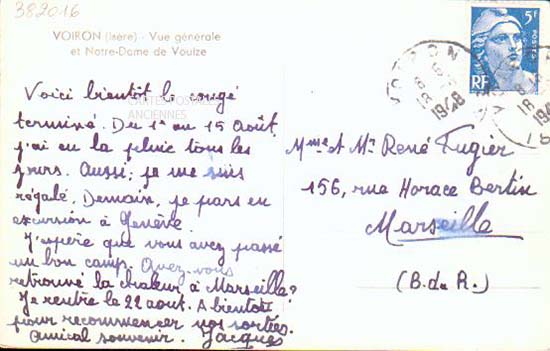 382016
VOIRON (Isère) - Vue générale
et Notre-Dame de Vouize
5F
POSTES
RF
VOIRON
18
1948
18
CARTES POSTALES
ANCIENNES
Voici bientôt le congé
terminé. Du 1er au 15 Août,
j'ai eu la pluie tous les
jours. Aussi, je me suis
régalé. Demain, je pars en
excursion à Genève.
J'espère que vous avez passé
un bon camp. Avez-vous
retrouvé la chaleur à Marseille?
Je rentre le 22 aout. A bientôt
pour recommencer nos sorties.
Amical souvenir. Jacques
Mme et Mr René Fugier
156, rue Horace Bertin
Marseille
(B. du R.)